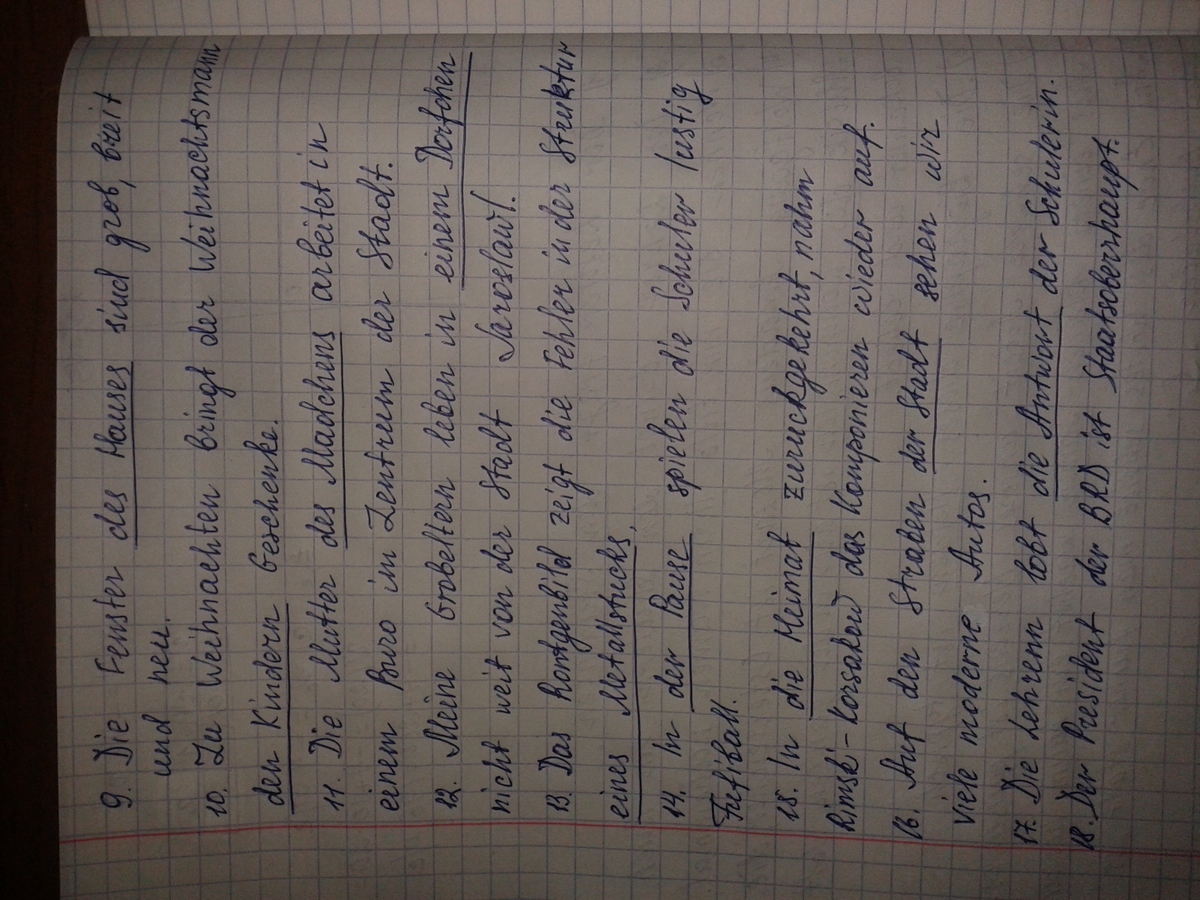 9. Die Fenster des Hauses sind grob, breit
und neu.
10. Zu Weihnachten bringt der Weihnachtsmann
den Kindern Geschenke.
11. Die Mutter des Madchens arbeitet in
einem Buro im Zentrum der Stadt.
12. Meine Grobeltern leben in einem Dorfchen
nicht weit von der Stadt Jaroslawl.
13. Das Rontgenbild zeigt die Fehler in der Struktur
eines Metallstucks.
14. In der Pause spielen die Schuler lustig
Fußball.
15. In die Heimat zuruckgekehrt, nahm
Rimski-Korsakow das Komponieren wieder auf.
16. Auf den Straben der Stadt sehen wir
viele moderne Autos.
17. Die Lehrerin lobt die Antwort der Schulerin.
18. Der President der BRD ist Staatsoberhaupt.